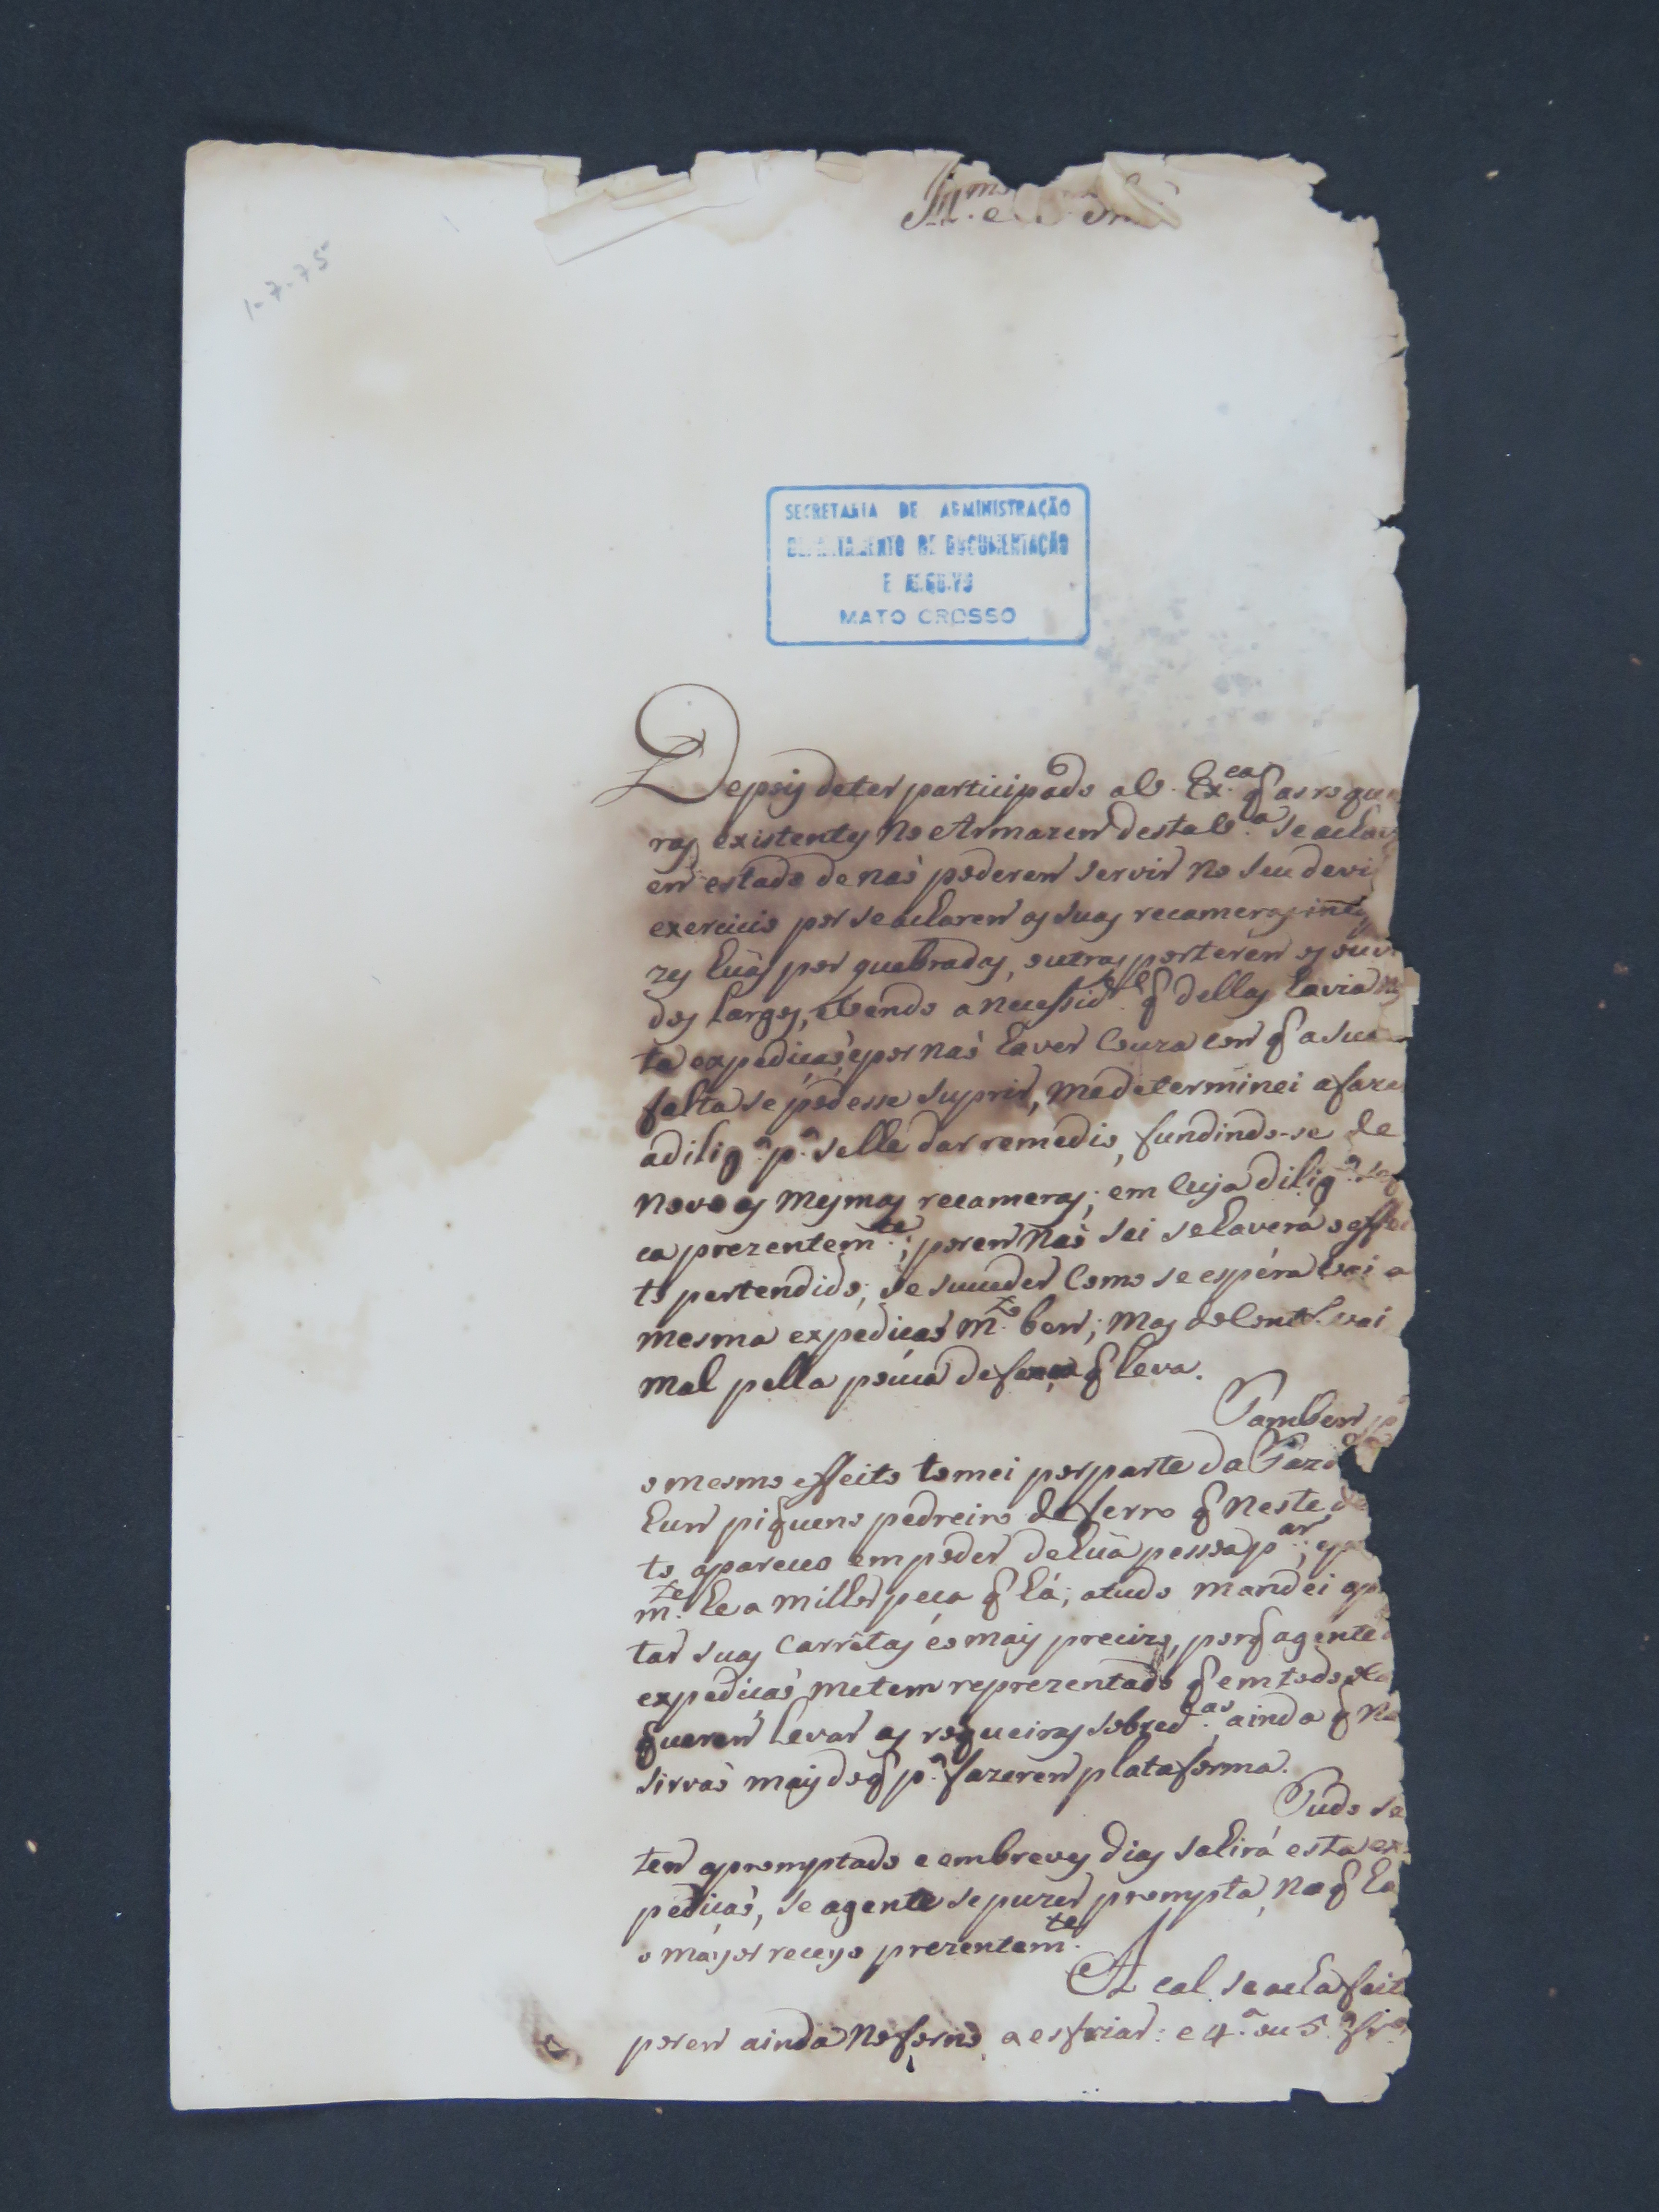 Ill.mo e Snr
1-7-75
SECRETARIA DE ADMINISTRAÇÃO
DEPARTAMENTO DE DOCUMENTAÇÃO
E ARQUIVO
MATO GROSSO
Depois de ter participado a V. Ex.ca q as roque
ras existentes no Armazem desta V.a se achaõ
em estado de naõ poderem servir no seu devi
exercicio por se acharem as suas recameras
zes huãs por quebradas, outras por terem os ouvi
dos largos, e vendo a necessid.e q dellas havia nes
ta expediçaõ, e por naõ haver couza com q a sua
falta se podesse suprir, me determinei a faze
a dilig.a p.a se lhe dar remedio, fundindo-se de
novo as mesmas recameras; em cuja dilig.a se
ca prezentem.te; porem naõ sei se haverá o effei
to pertendido; se suceder como se espéra vai a
mesma expediçaõ m.to bem; mas do contr.o vai
mal pella pouca defença q leva.
Tambem p
o mesmo effeito tomei por parte da Faz
hum piqueno pedreiro de ferro q neste de
to apareceo em poder de huã pessoa p.ar;
m.te he a milhor peça q há; a tudo mandei ap
tar suas carretas é o mais precizo, porq a gente
expediçaõ me tem reprezentado q em todo
querem levar as roqueiras sobred.as ainda q na
sirvaõ mais do q p.a fazerem plataforma.
Tudo se
tem apromptado e em breves dias sahirá esta ex
pediçaõ, se a gente se puzer prompta, no q ha
o mayor receyo prezentem.te
A cal se acha feit
porem ainda no forno a esfriar: e 4.a ou 5.a fr.a